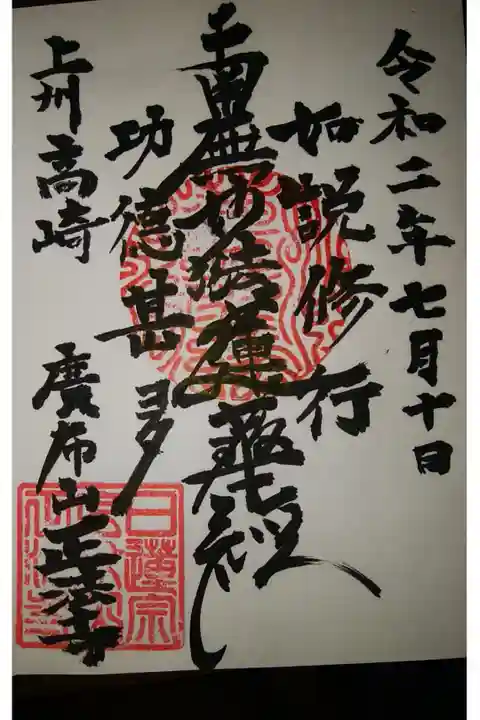 令和二年七月十日
如説修行
南無妙法蓮華経
功徳甚多
上州高崎 廣布山正法寺
日蓮宗